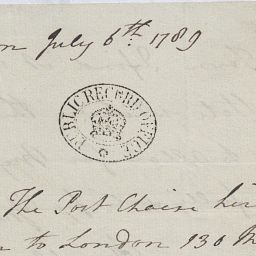 on July 6th 1789
PUBLIC RECORD OFFICE
The Post Chaise
to London 130